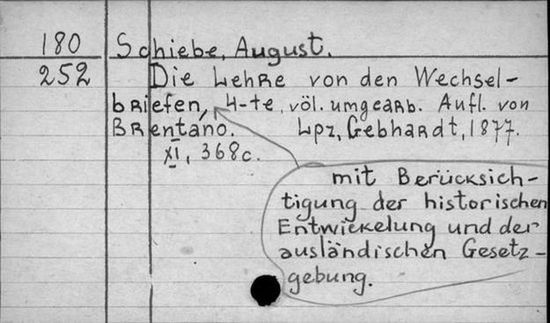 180 Schiebe, August.
252 Die Lehre von den Wechsel-
briefen, 4-te, völ. umgearb. Aufl. von
Brentano. Lpz, Gebhardt, 1877.
XI, 368c.
mit Berücksich-
tigung der historischen
Entwickelung und der
ausländischen Gesetz-
gebung.